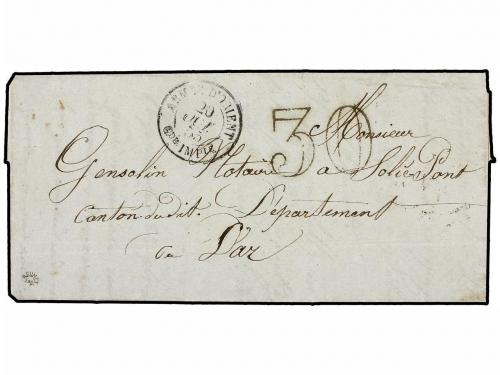 ARMÉE D'ORIENT
20
55
Gde IMPle
30
Monsieur
Gensolin Notaire à Soliès Pont
Canton du dit. Département
du Var